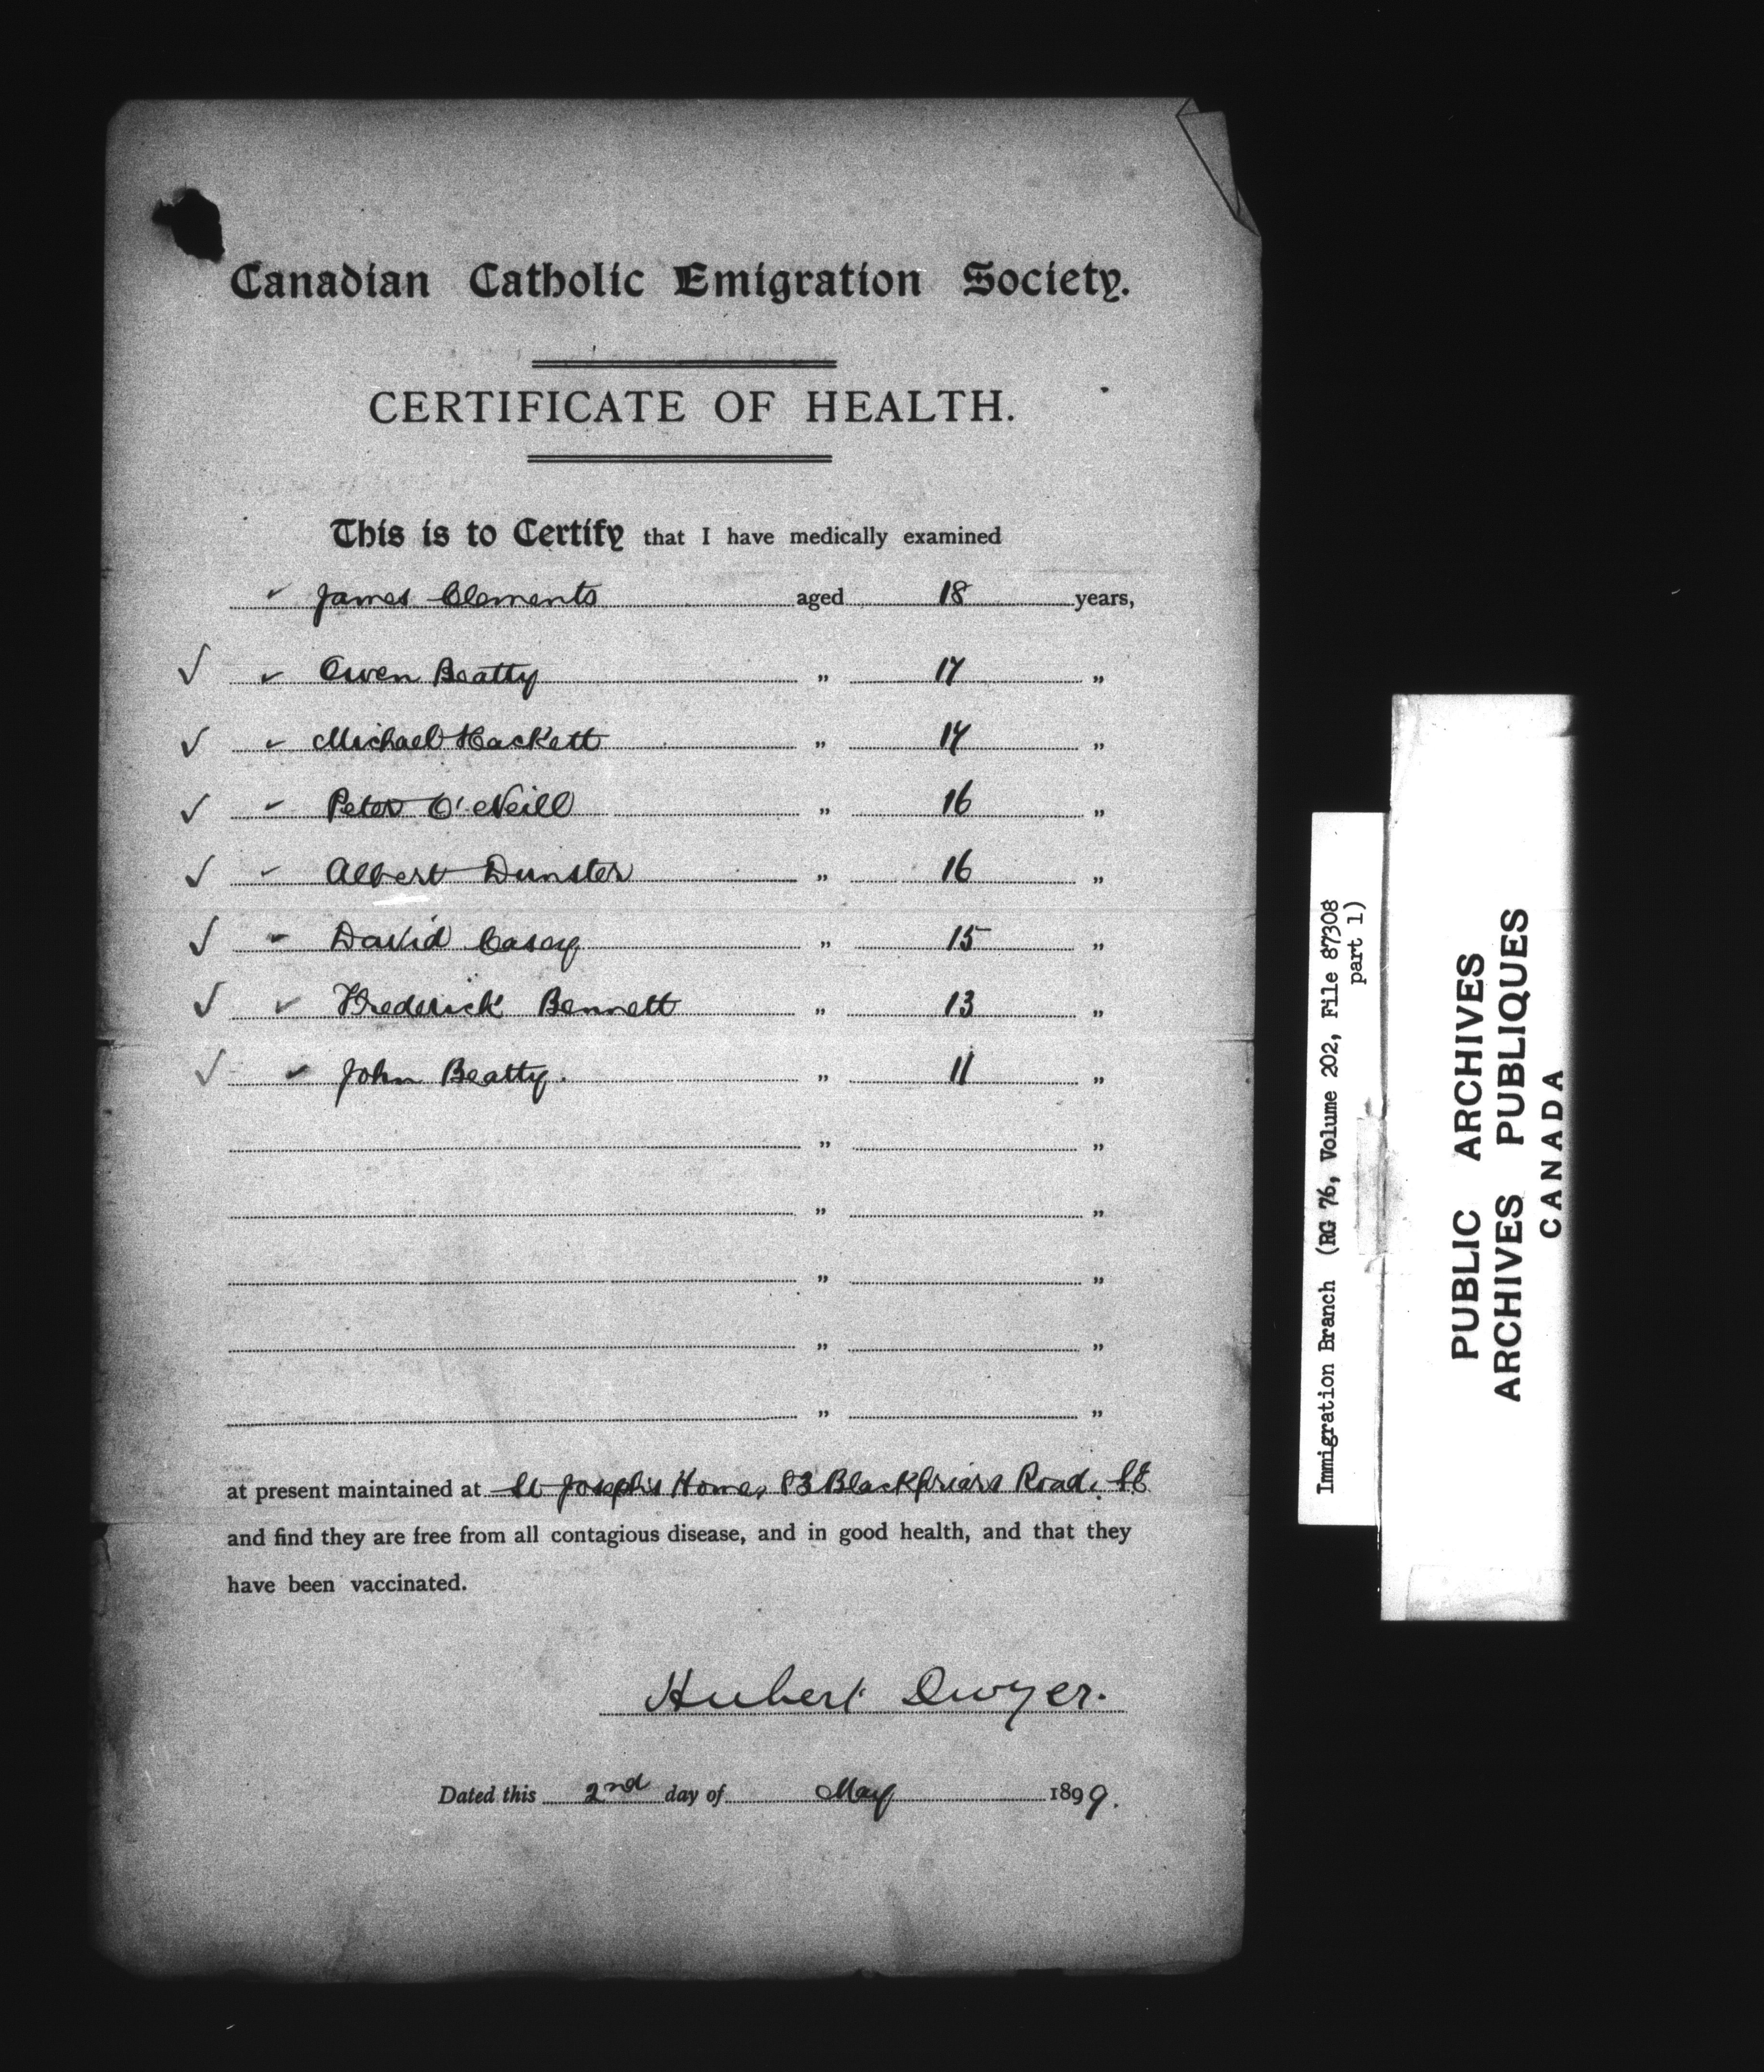 Canadian Catholic Emigration Society.
CERTIFICATE OF HEALTH.
This is to Certify that I have medically examined
✓ James Clements aged 18 years,
✓ ✓ Owen Beatty „ 17 „
✓ ✓ Michael Hackett „ 17 „
✓ ✓ Peter O'Neill „ 16 „
✓ ✓ Albert Dunster „ 16 „
✓ ✓ David Casey „ 15 „
✓ ✓ Frederick Bennett „ 13 „
✓ ✓ John Beatty. „ 11 „
„ „
„ „
„ „
„ „
„ „
at present maintained at St Joseph's Home, 83 Blackfriars Road, SE
and find they are free from all contagious disease, and in good health, and that they
have been vaccinated.
Hubert Dwyer.
Dated this 2nd day of May 1899.
Immigration Branch (RG 76, Volume 202, File 87308
part 1)
PUBLIC ARCHIVES
ARCHIVES PUBLIQUES
CANADA